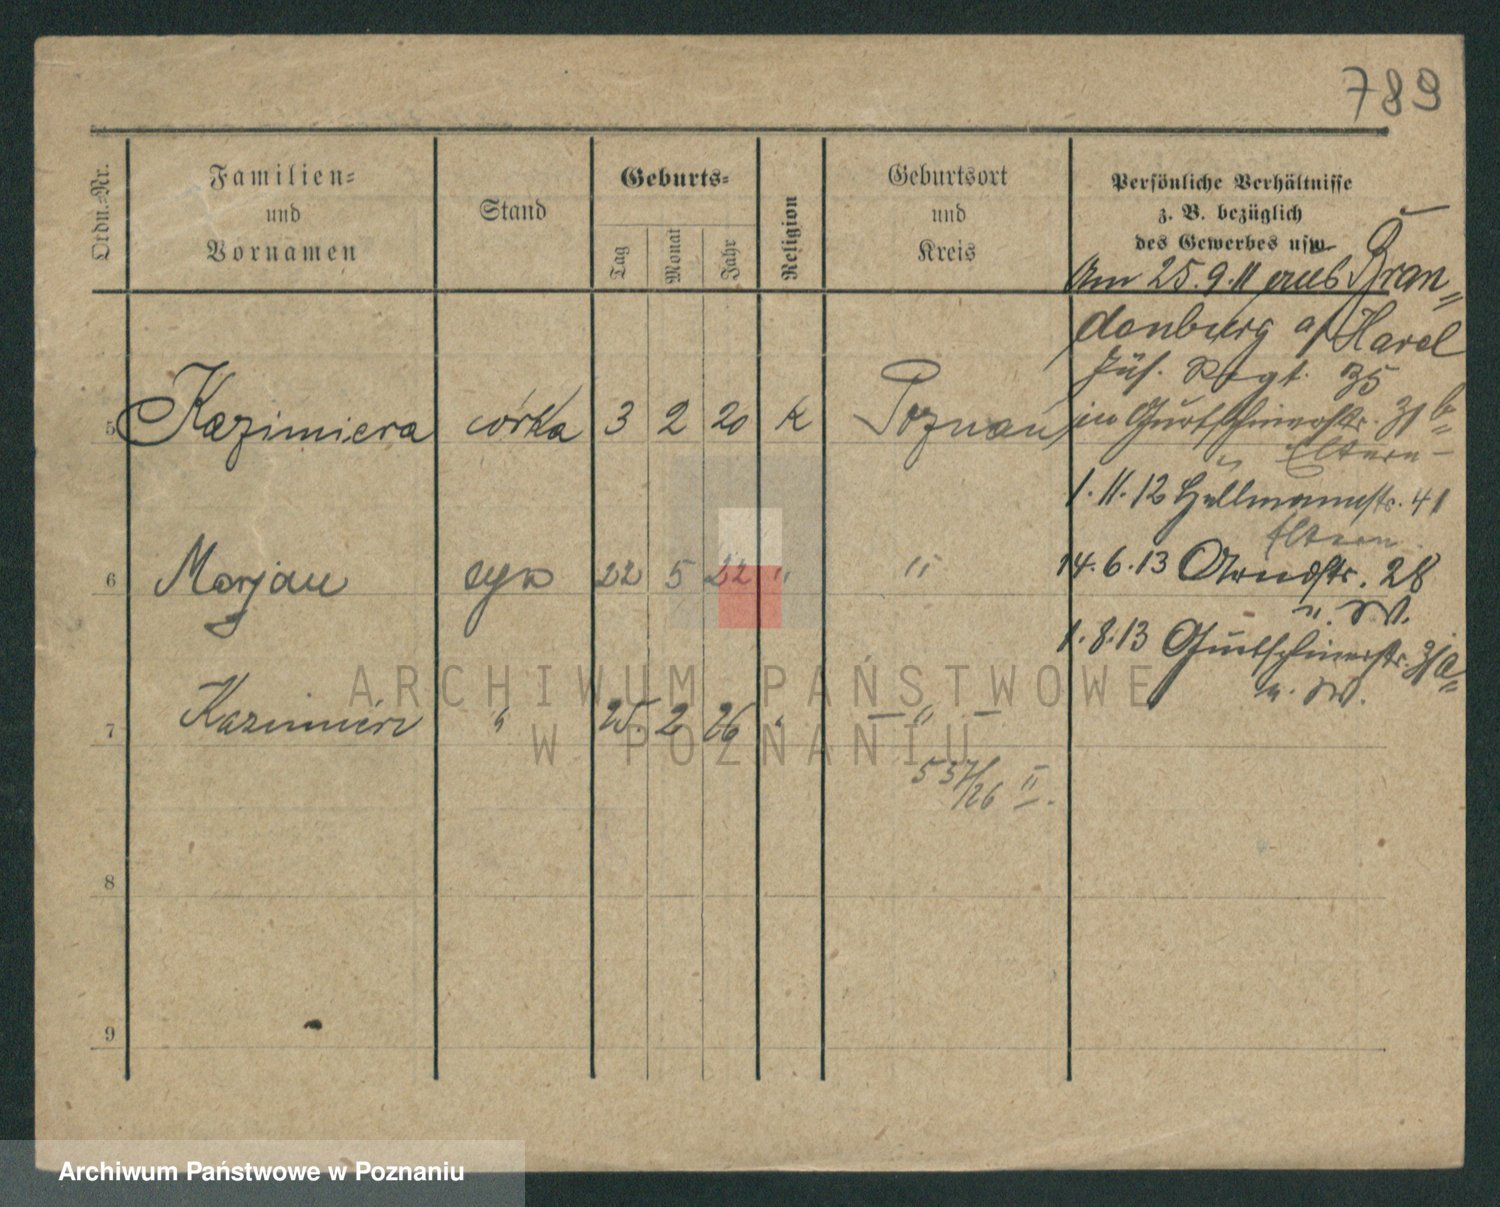 789
Ordn.-Nr.
Familien-
und
Vornamen
Stand
Geburts-
Tag
Monat
Jahr
Religion
Geburtsort
und
Kreis
Persönliche Verhältnisse
z. B. bezüglich
des Gewerbes usw.
5 Kazimiera córka 3 2 20 k Poznań
6 Marjan syn 22 5 22 " "
7 Kazimierz " 25. 2 26 " — " —
537/26 II.
8
9
Am 25.9.11 aus Bran-
denburg a/Havel
Füs. Regt. 35
in Gurtschinerstr. 31b
u Eltern
1.11.12 Hellmannstr. 41
Eltern
14.6.13 Arndtstr. 28
u. W.
1.8.13 Gurtschinerstr. 31a
u. W.
ARCHIWUM PAŃSTWOWE
W POZNANIU
Archiwum Państwowe w Poznaniu